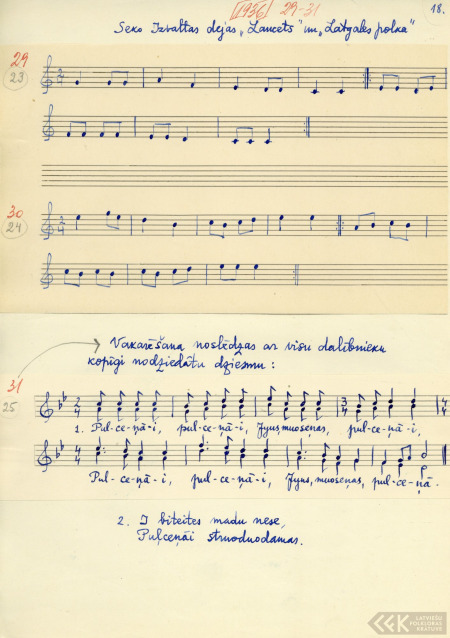 [1936] 29-31
18.
Seko Izvaltas dejas „Lancets" un „Latgales polka"
29
23
30
24
Vakarēšana noslēdzas ar visu dalībnieku
kopīgi nodziedātu dziesmu:
31
25
1. Pul-ce-ņā-i, pul-ce-ņā-i, Jyus, muoseņas, pul-ce-ņā-i,
Pul-ce-ņā-i, pul-ce-ņā-i, Jyus, muoseņas, pul-ce-ņā.
2. I biteites madu nese,
Puļceņāi struoduodamas.
LATVIEŠU
FOLKLORAS
KRĀTUVE